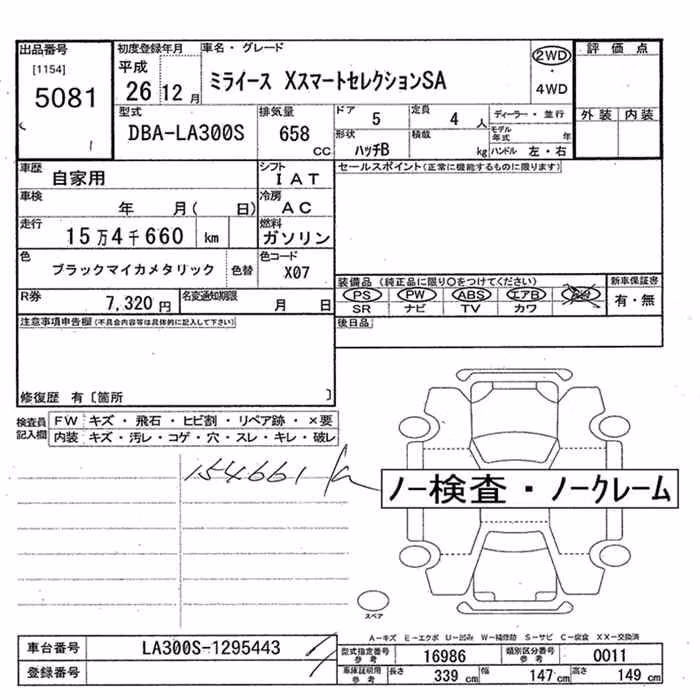 出品番号 初度登録年月 車名・グレード 評価点
[1154] 平成 2WD
5081 26 12月 ミライース XスマートセレクションSA 4WD
型式 排気量 ドア 定員 ディーラー・並行 外装 内装
DBA-LA300S 658 CC 5 4 人 モデル年式 年
形状 ハッチB 積載 kg ハンドル 左・右
車歴 自家用 シフト IAT セールスポイント(正常に機能するものに限ります)
車検 年 月( 日) 冷房 AC
走行 15万4千660 km 燃料 ガソリン
色 ブラックマイカメタリック 色替 色コード X07
装備品(純正品に限り○をつけてください) 新車保証書
PS PW ABS エアB 有・無
SR ナビ TV カワ
R券 7,320円 名変通知期限 月 日
注意事項申告欄(不具合内容等は具体的に記入して下さい) 後日品
修復歴 有〔箇所 〕
検査員記入欄 FW キズ・飛石・ヒビ割・リペア跡・×要
内装 キズ・汚レ・コゲ・穴・スレ・キレ・破レ
154661
ノー検査・ノークレーム
スペア
A-キズ E-エクボ U-凹み W-補修跡 S-サビ C-腐食 XX-交換済
車台番号 LA300S-1295443 型式指定番号参考 16986 類別区分番号参考 0011
登録番号 車庫証明用参考 長さ 339cm 幅 147cm 高さ 149cm